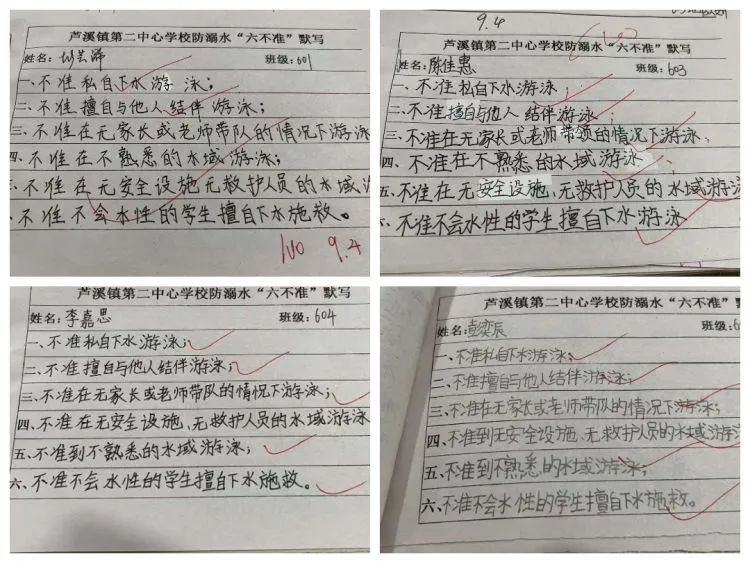 芦溪镇第二中心学校防溺水“六不准”默写
姓名: 班级:601
一、不准私自下水游泳;
二、不准擅自与他人结伴游泳;
三、不准在无家长或老师带队的情况下游泳
四、不准在不熟悉的水域游泳;
五、不准在无安全设施无救护人员的水域
、不准不会水性的学生擅自下水施救。
100 9.4
9.4
100
芦溪镇第二中心学校防溺水“六不准”默写
姓名:陈佳惠 班级:603
一、不准私自下水游泳;
二、不准擅自与他人结伴游泳;
三、不准在无家长或老师带领的情况下游泳;
四、不准在不熟悉的水域游泳
五、不准在无安全设施、无救护人员的水域游泳
六、不准不会水性的学生擅自下水游泳
芦溪镇第二中心学校防溺水“六不准”默写
姓名:李嘉思 班级:604
一、不准私自下水游泳;
二、不准擅自与他人结伴游泳;
三、不准在无家长或老师带队的情况下游泳;
四、不准在无安全设施、无救护人员的水域游泳
五、不准到不熟悉的水域游泳;
六、不准不会水性的学生擅自下水施救。
芦溪镇第二中心学校防溺水“六不准”默写
姓名:彭奕辰 班级:6
一、不准私自下水游泳;
二、不准擅自与他人结伴游泳;
三、不准在无家长或老师带队的情况下游泳;
四、不准到无安全设施、无救护人员的水域游泳
五、不准到不熟悉的水域游泳;
六、不准不会水性的学生擅自下水施救。